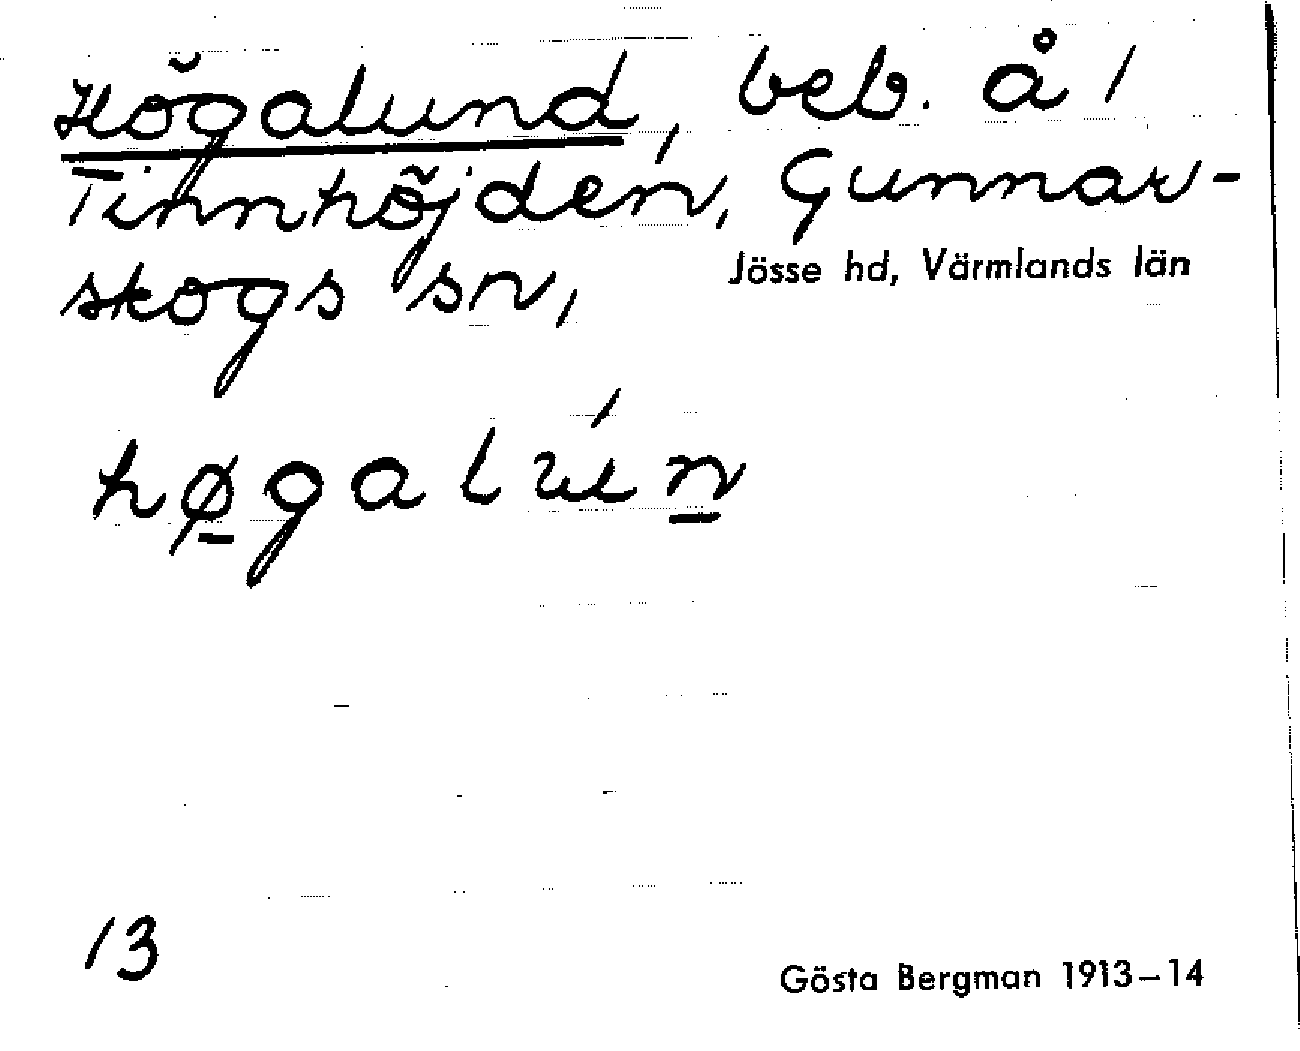 Högalund, beb. å 1
Tinnhöjden, Gunnar-
skogs sn,
Jösse hd, Värmlands län
hø̱galún̲
13
Gösta Bergman 1913–14